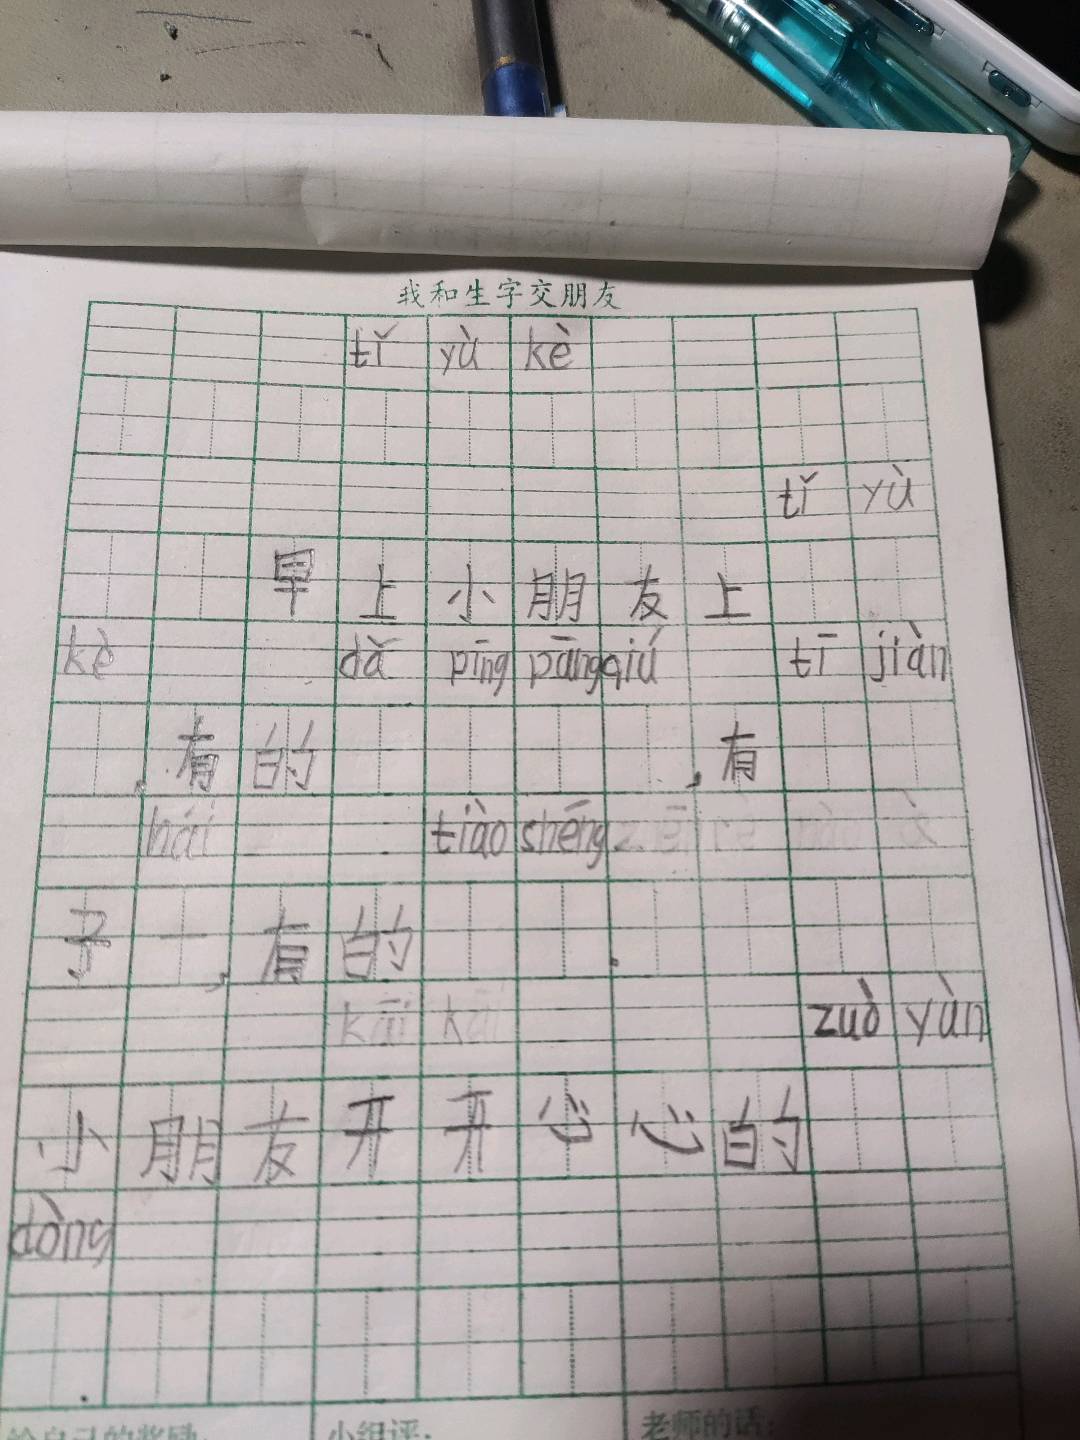 我和生字交朋友
tǐ yù kè
tǐ yù
早上小朋友上
kè dǎ pīng pāng qiú tī jiàn
,有的,有
hái tiào shéng
子一,有的.
kāi kāi zuò yùn
小朋友开开心心的
dòng
.
给自己的奖励: 小组评: 老师的话: